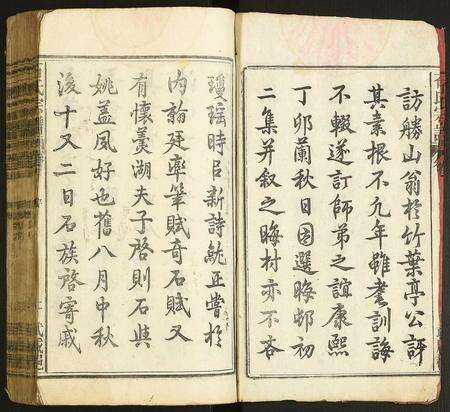 訪勝山翁於竹葉亭公評
其素根不九年雖耄訓誨
不輟遂訂師弟之誼康熙
丁卯蘭秋日因選晦邨初
二集并叙之晦村亦不吝
瓊瑶時呂新詩皃亚嘗於
内翰廷率筆賦奇石賦又
有懷羡湖夫子啓則石與
姚盖夙好也舊八月中秋
後十又二日石族啓寄戚